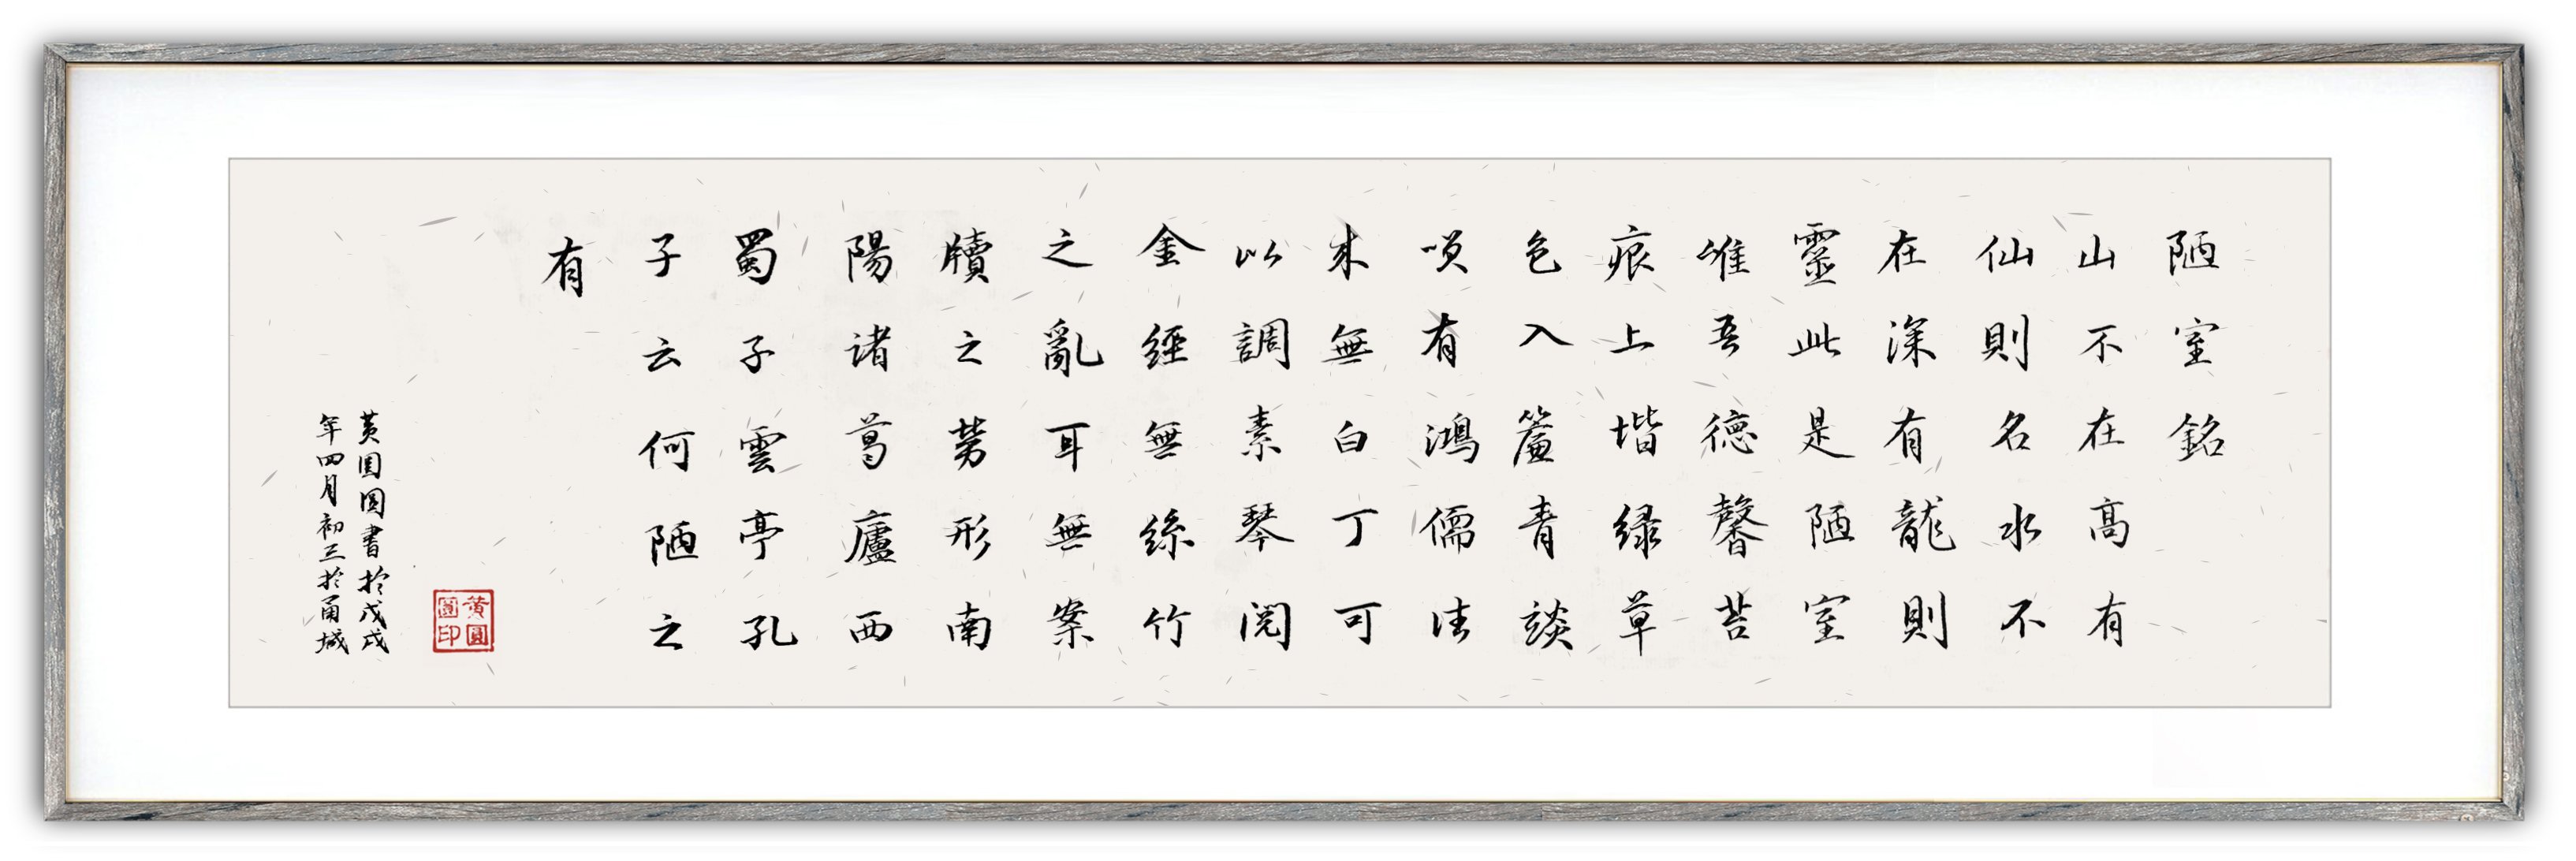 陋室銘
山不在高有
仙則名水不
在深有龍則
靈此是陋室
唯吾德馨苔
痕上堦緑草
色入簾青談
咲有鴻儒往
来無白丁可
以調素琴閲
金經無絲竹
之亂耳無案
牘之勞形南
陽诸葛廬西
蜀子雲亭孔
子云何陋之
有
黄圓圓印
黄圓圓書於戊戌
年四月初三於甬城